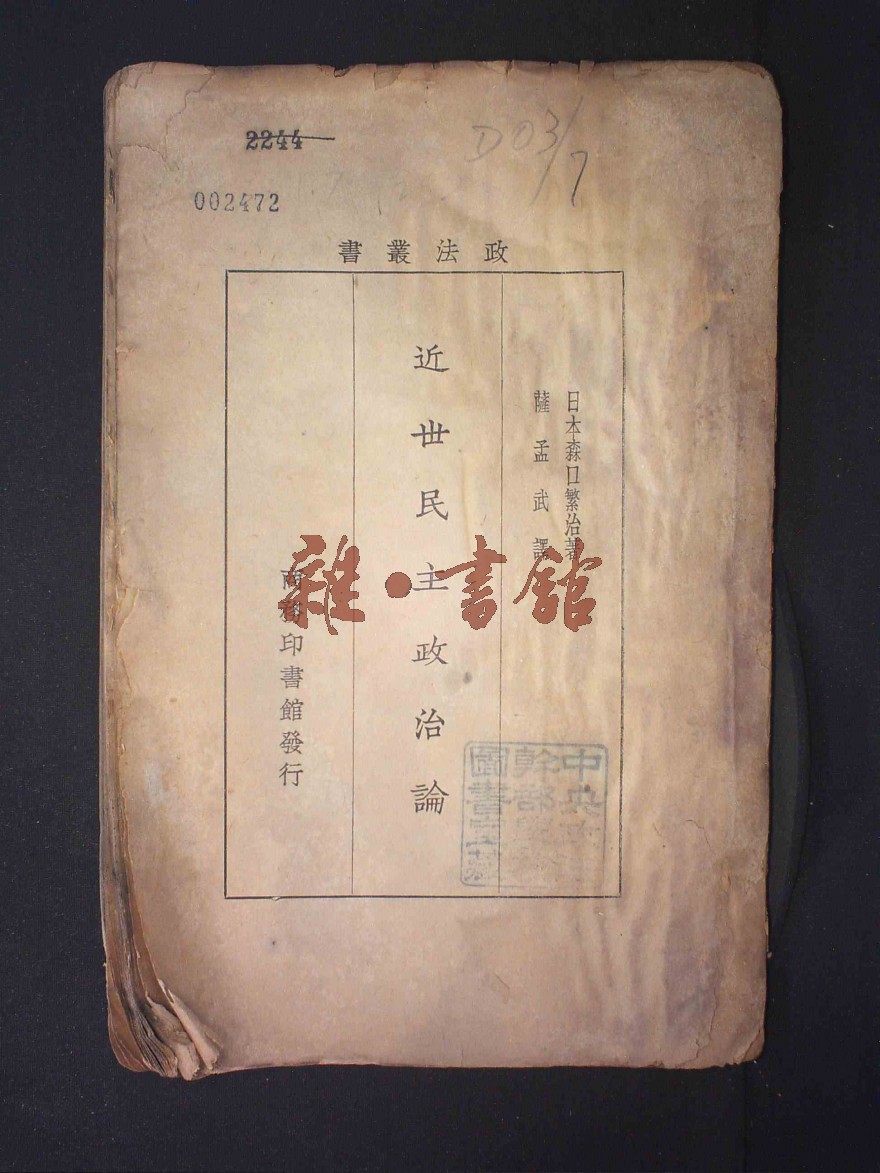 2244
D03/7
002472
政法叢書
日本森口繁治著
薩孟武譯
近世民主政治論
商務印書館發行
雜·書館
中央
幹部學校
圖書